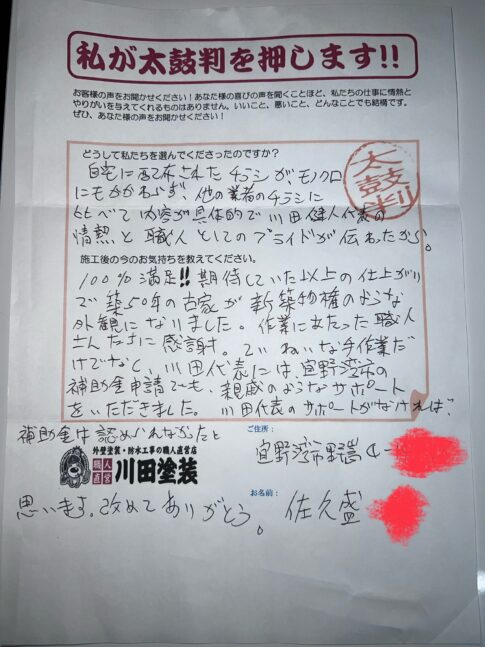 私が太鼓判を押します!!
お客様の声をお聞かせください！あなた様の喜びの声を聞くことほど、私たちの仕事に情熱と
やりがいを与えてくれるものはありません。いいこと、悪いこと、どんなことでも結構です。
ぜひ、あなた様の声をお聞かせください！
太鼓判
どうして私たちを選んでくださったのですか？
自宅に配布されたチラシが、モノクロ
にもかかわらず、他の業者のチラシに
比べて内容が具体的で川田健人代表の
情熱と職人としてのプライドが伝わたから。
施工後の今のお気持ちを教えてください。
100%満足!!期待していた以上の仕上がり
で築50年の古家が新築物権のような
外観になりました。作業に立たった職人
さんたちに感謝。ていねいな手作業だ
けでなく、川田代表には、宜野湾市の
補助金申請でも、親戚のようなサポート
をいただきました。川田代表のサポートがなければ、
補助金は認められなかったと
ご住所：
宜野湾市野嵩4-
外壁塗装・防水工事の職人直営店
職人直営 川田塗装
お名前：
思います。改めてありがとう。
佐久盛